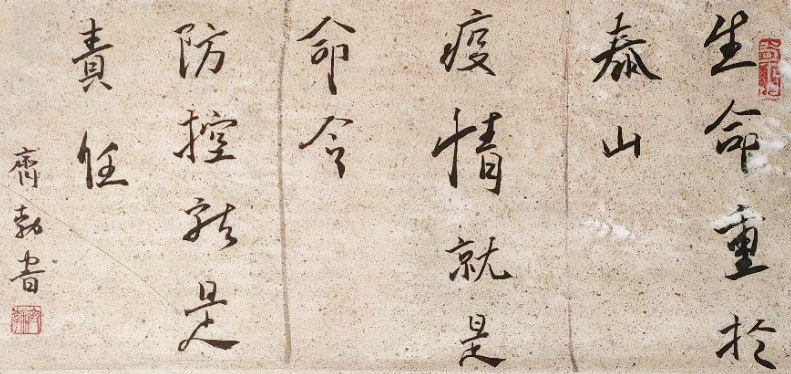 生命重於
泰山
疫情就是
命令
防控就是
責任
齊勃書